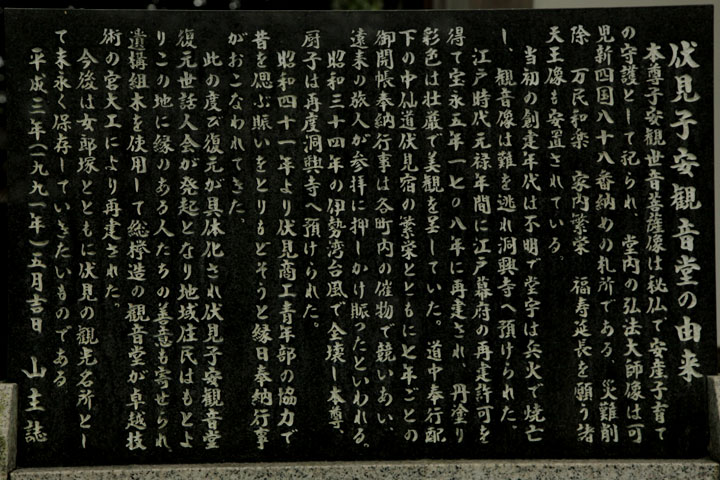 伏見子安観音堂の由来
本尊子安観世音菩薩像は秘仏で安産子育て
の守護として祀られ、堂内の弘法大師像は可
児新四国八十八番納めの札所である。災難削
除 万民和楽 家内繁栄 福寿延長を願う諸
天王像も安置されている。
当初の創建年代は不明で堂宇は兵火で焼亡
し、観音像は難を逃れ洞興寺へ預けられた。
江戸時代元禄年間に江戸幕府の再建許可を
得て宝永五年一七〇八年に再建され、丹塗り
彩色は壮厳で美観を呈していた。道中奉行配
下の中仙道伏見宿の繁栄とともに七年ごとの
御開帳奉納行事は各町内の催物で競いあい、
遠来の旅人が参拝に押しかけ賑ったといわれる。
昭和三十四年の伊勢湾台風で全壊し本尊、
厨子は再度洞興寺へ預けられた。
昭和四十一年より伏見商工青年部の協力で
昔を偲ぶ賑いをとりもどそうと縁日奉納行事
がおこなわれてきた。
此の度び復元が具体化され伏見子安観音堂
復元世話人会が発起となり地域住民はもとよ
りこの地に縁のある人たちの善意も寄せられ、
遺構組木を使用して総欅造の観音堂が卓越技
術の宮大工により再建された。
今後は女郎塚とともに伏見の観光名所とし
て末永く保存していきたいものである
平成三年(一九九一年)五月吉日 山主誌